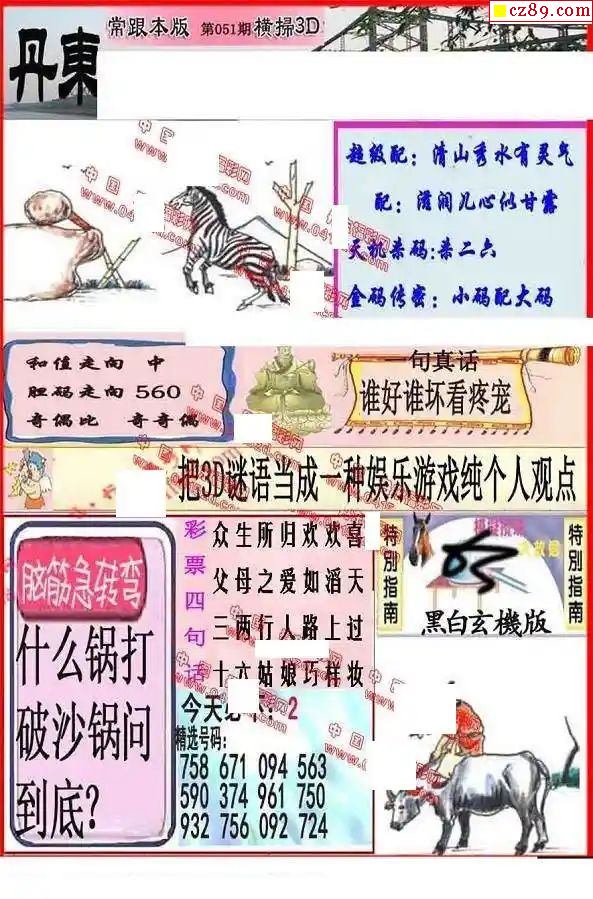 cz89.com
常跟本版 第051期 横掃3D
丹東
超级配：清山秀水有灵气
配：滋润儿心似甘露
天机杀码:杀二六
金码传密：小码配大码
和值走向 中
胆码走向 560
奇偶比 奇奇偶
句真话
谁好谁坏看疼宠
把3D谜语当成一种娱乐游戏纯个人观点
脑筋急转弯
什么锅打
破沙锅问
到底?
彩票四句话
众生所归欢欢喜
父母之爱如滔天
三两行人路上过
十六姑娘巧样妆
今天必下：2
精选号码:
758 671 094 563
590 374 961 750
932 756 092 724
特别指南
特別指南
黑白玄機版